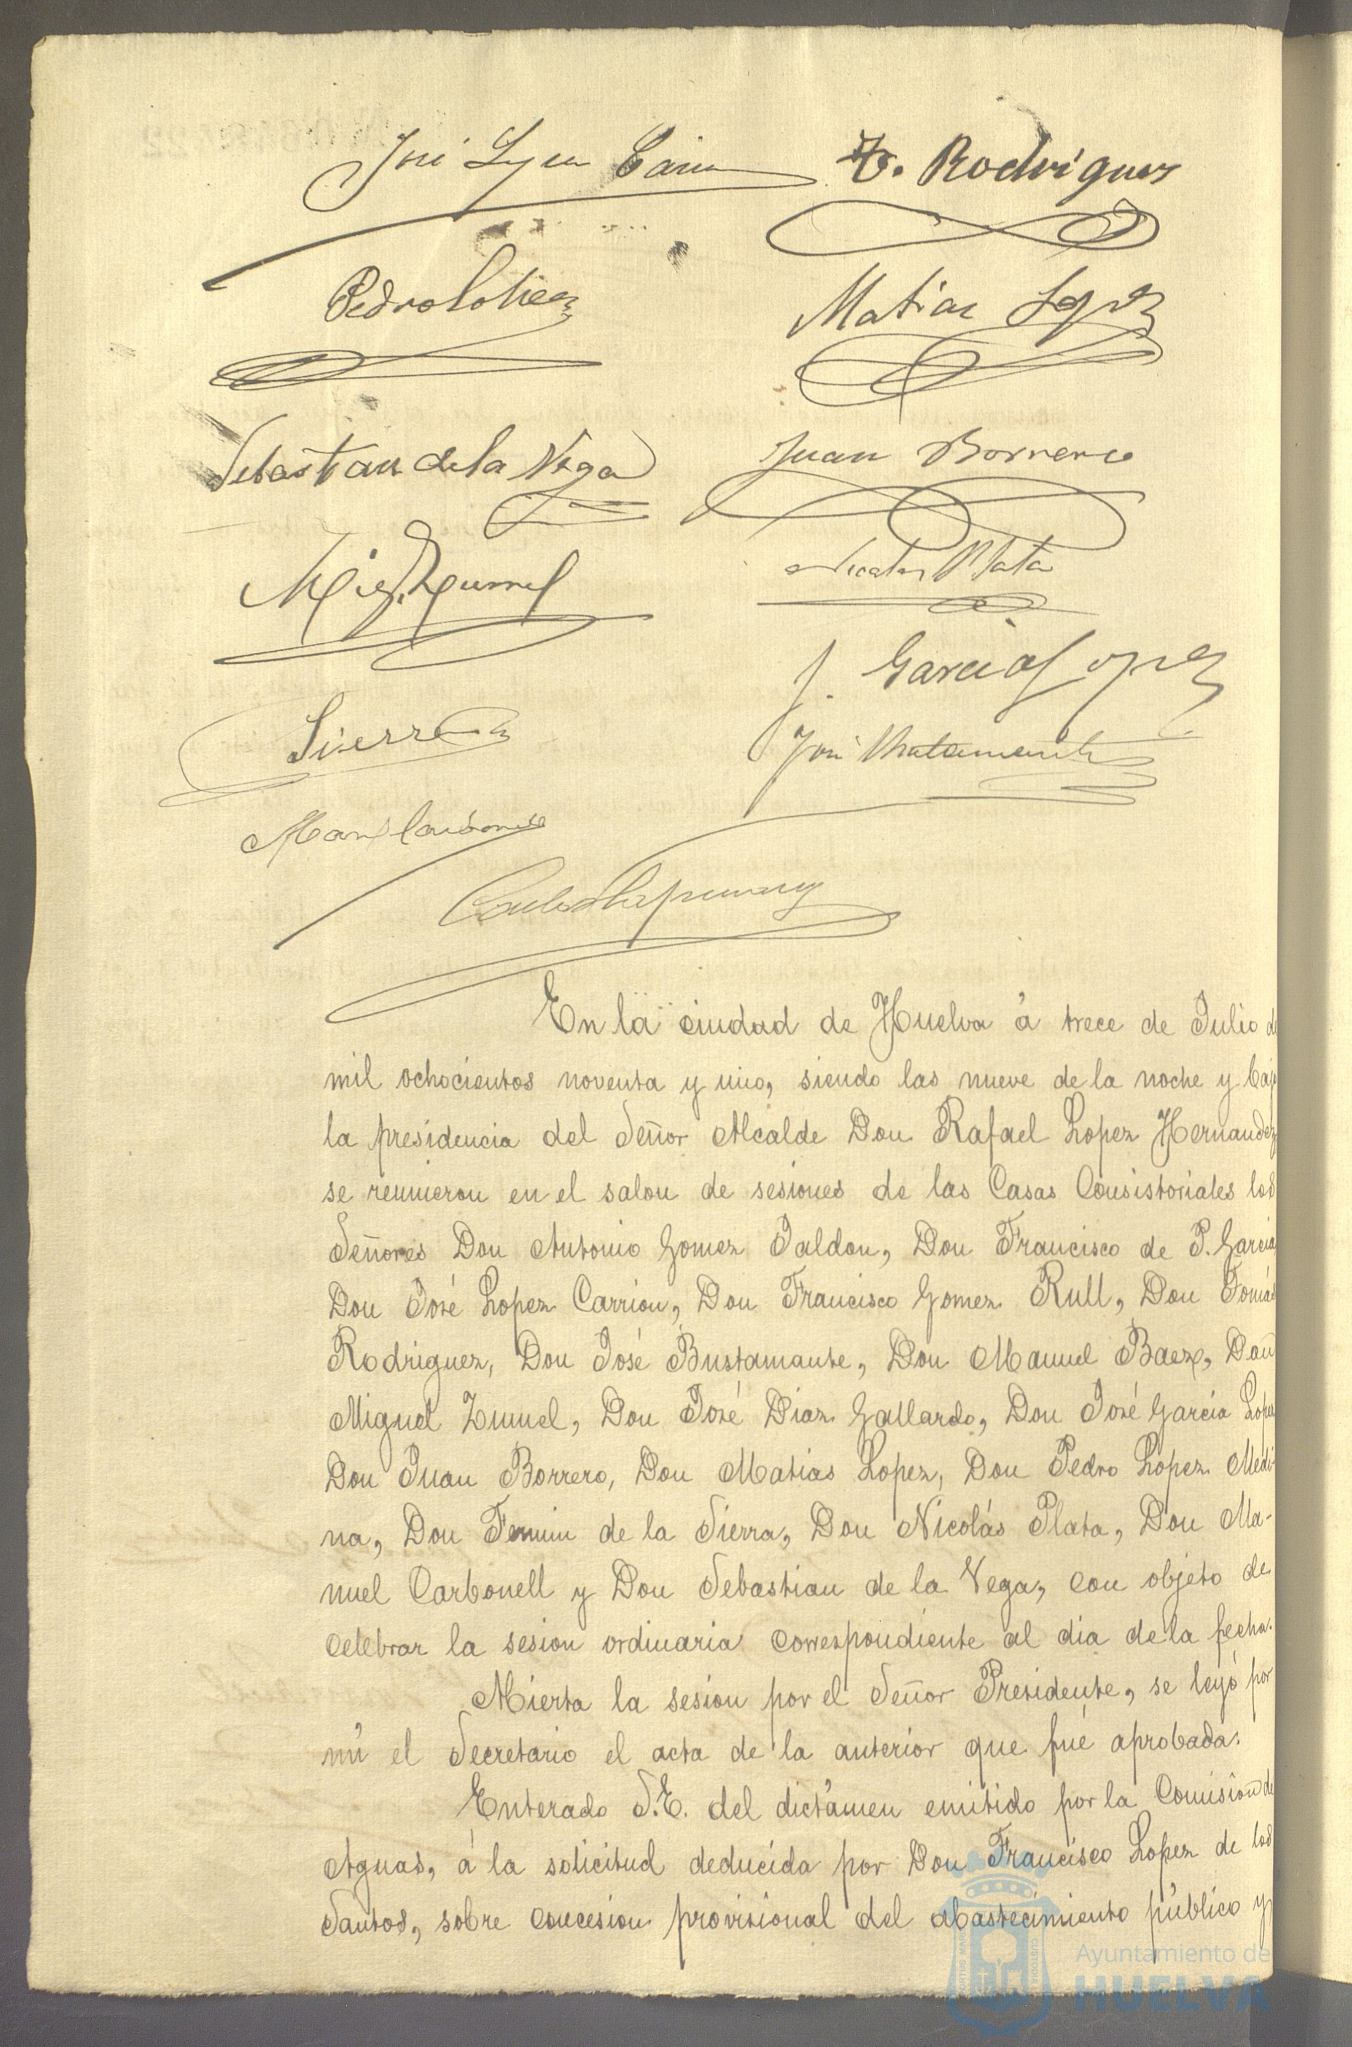 José Lopez Carrion T. Rodriguez
Pedro Lopez Matias Lopez
Sebastian de la Vega Juan Borrero
Mig. Zumel Nicolas Plata
J. Garcia Lopez
Sierra José Bustamante
Man. Carbonell
Carlos
En la ciudad de Huelva á trece de Julio de
mil ochocientos noventa y uno, siendo las nueve de la noche y bajo
la presidencia del Señor Alcalde Don Rafael Lopez Hernandez
se reunieron en el salon de sesiones de las Casas Consistoriales los
Señores Don Antonio Gomez Jaldon, Don Francisco de P. Garcia
Don José Lopez Carrion, Don Francisco Gomez Rull, Don Tomás
Rodriguez, Don José Bustamante, Don Manuel Baez, Don
Miguel Zumel, Don José Diaz Gallardo, Don José Garcia Lopez
Don Juan Borrero, Don Matias Lopez, Don Pedro Lopez Medi-
na, Don Fermin de la Sierra, Don Nicolás Plata, Don Ma-
nuel Carbonell y Don Sebastian de la Vega, con objeto de
celebrar la sesion ordinaria correspondiente al dia de la fecha.
Abierta la sesion por el Señor Presidente, se leyó por
mí el Secretario el acta de la anterior que fué aprobada.
Enterado S.E. del dictámen emitido por la Comisión de
Aguas, á la solicitud deducida por Don Francisco Lopez de los
Santos, sobre concesion provisional del abastecimiento público y
Ayuntamiento de
HUELVA